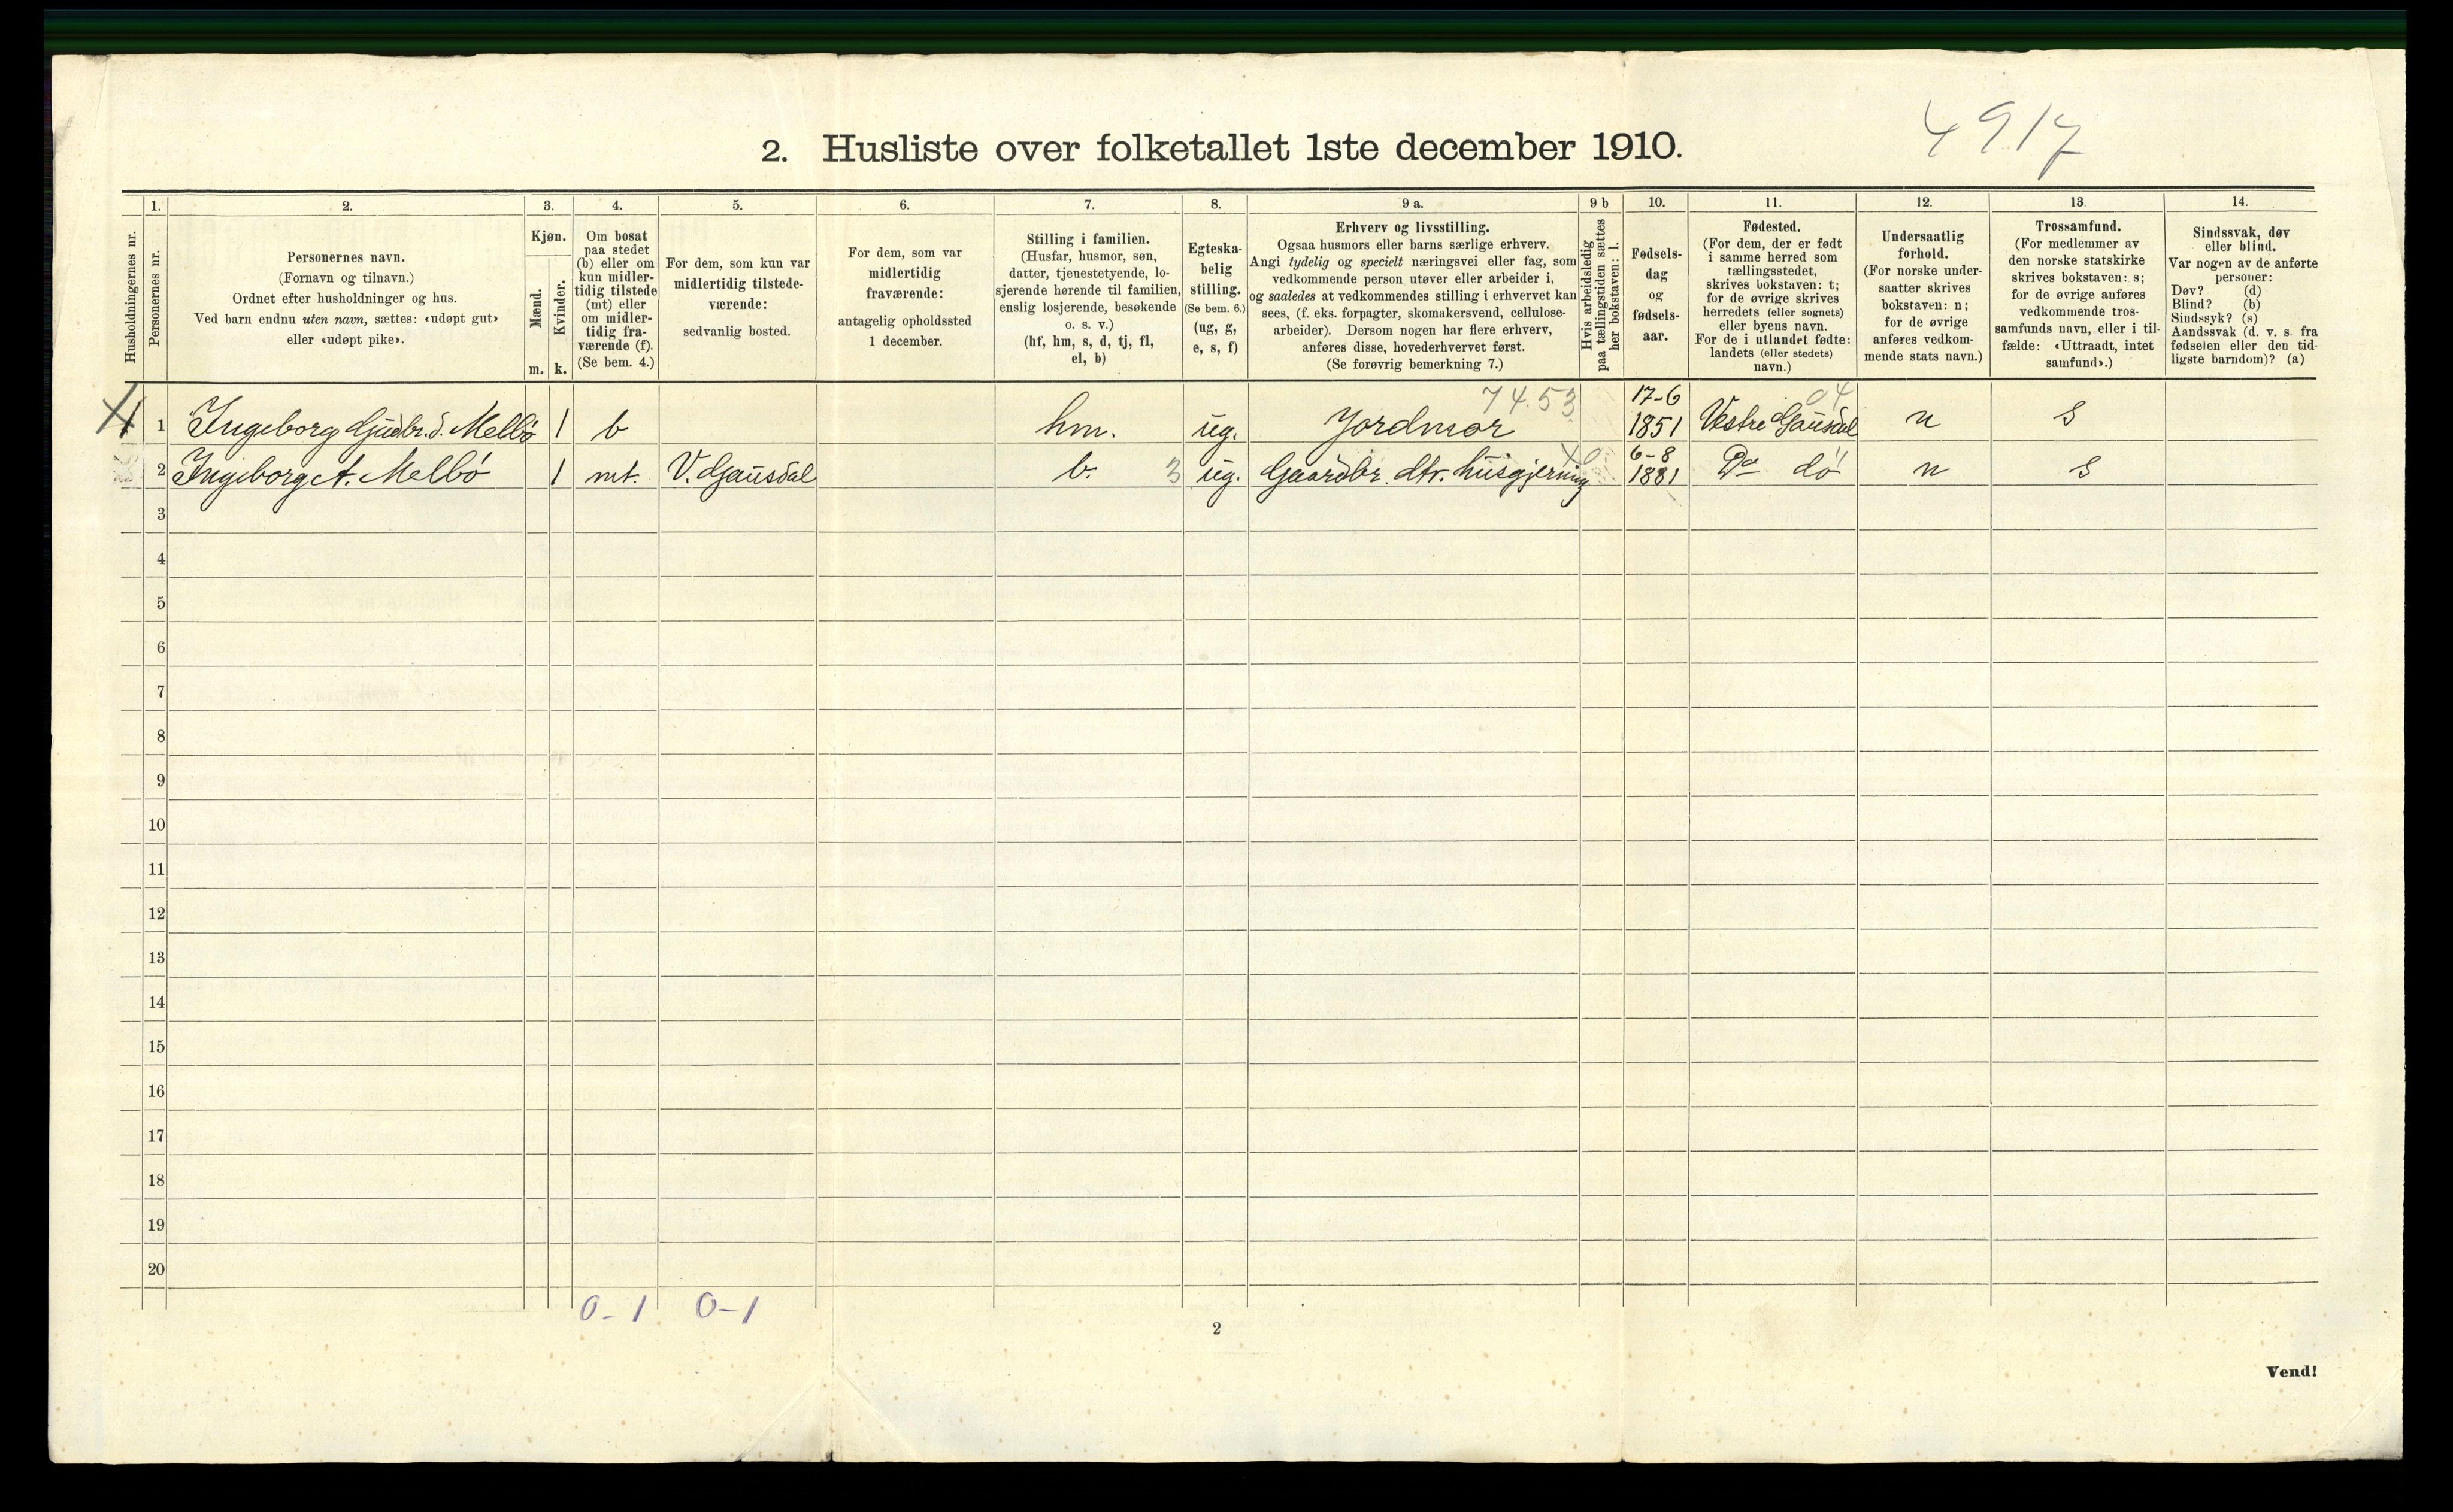 4917
2. Husliste over folketallet 1ste december 1910.
Husholdningernes nr.
1.
Personernes nr.
2.
Personernes navn.
(Fornavn og tilnavn.)
Ordnet efter husholdninger og hus.
Ved barn endnu uten navn, sættes: «udøpt gut»
eller «udøpt pike».
3.
Kjøn.
Mænd.
Kvinder.
m. k.
4.
Om bosat
paa stedet
(b) eller om
kun midler-
tidig tilstede
(mt) eller
om midler-
tidig fra-
værende (f).
(Se bem. 4.)
5.
For dem, som kun var
midlertidig tilstede-
værende:
sedvanlig bosted.
6.
For dem, som var
midlertidig
fraværende:
antagelig opholdssted
1 december.
7.
Stilling i familien.
(Husfar, husmor, søn,
datter, tjenestetyende, lo-
sjerende hørende til familien,
enslig losjerende, besøkende
o. s. v.)
(hf, hm, s, d, tj, fl,
el, b)
8.
Egteska-
belig
stilling.
(Se bem. 6.)
(ug, g,
e, s, f)
9 a.
Erhverv og livsstilling.
Ogsaa husmors eller barns særlige erhverv.
Angi tydelig og specielt næringsvei eller fag, som
vedkommende person utøver eller arbeider i,
og saaledes at vedkommendes stilling i erhvervet kan
sees, (f. eks. forpagter, skomakersvend, cellulose-
arbeider). Dersom nogen har flere erhverv,
anføres disse, hovederhvervet først.
(Se forøvrig bemerkning 7.)
9 b
Hvis arbeidsledig
paa tællingstiden sættes
her bokstaven: l.
10.
Fødsels-
dag
og
fødsels-
aar.
11.
Fødested.
(For dem, der er født
i samme herred som
tællingsstedet,
skrives bokstaven: t;
for de øvrige skrives
herredets (eller sognets)
eller byens navn.
For de i utlandet fødte:
landets (eller stedets)
navn.)
12.
Undersaatlig
forhold.
(For norske under-
saatter skrives
bokstaven: n;
for de øvrige
anføres vedkom-
mende stats navn.)
13.
Trossamfund.
(For medlemmer av
den norske statskirke
skrives bokstaven: s;
for de øvrige anføres
vedkommende tros-
samfunds navn, eller i til-
fælde: «Uttraadt, intet
samfund».)
14.
Sindssvak, døv
eller blind.
Var nogen av de anførte
personer:
Døv? (d)
Blind? (b)
Sindssyk? (s)
Aandssvak (d. v. s. fra
fødselen eller den tid-
ligste barndom)? (a)
7453 17-6 04
1 1 Ingeborg Gudbr.d. Melbö 1 b hm. ug. Jordmor 1851 Vestre Gausdal n s
6-8
2 Ingeborg A. Melbö 1 mt. V. Gausdal b. 3 ug. Gaardbr. dtr. husgjerning 1881 Do do n s
3
4
5
6
7
8
9
10
11
12
13
14
15
16
17
18
19
20
0-1 0-1
2
Vend!